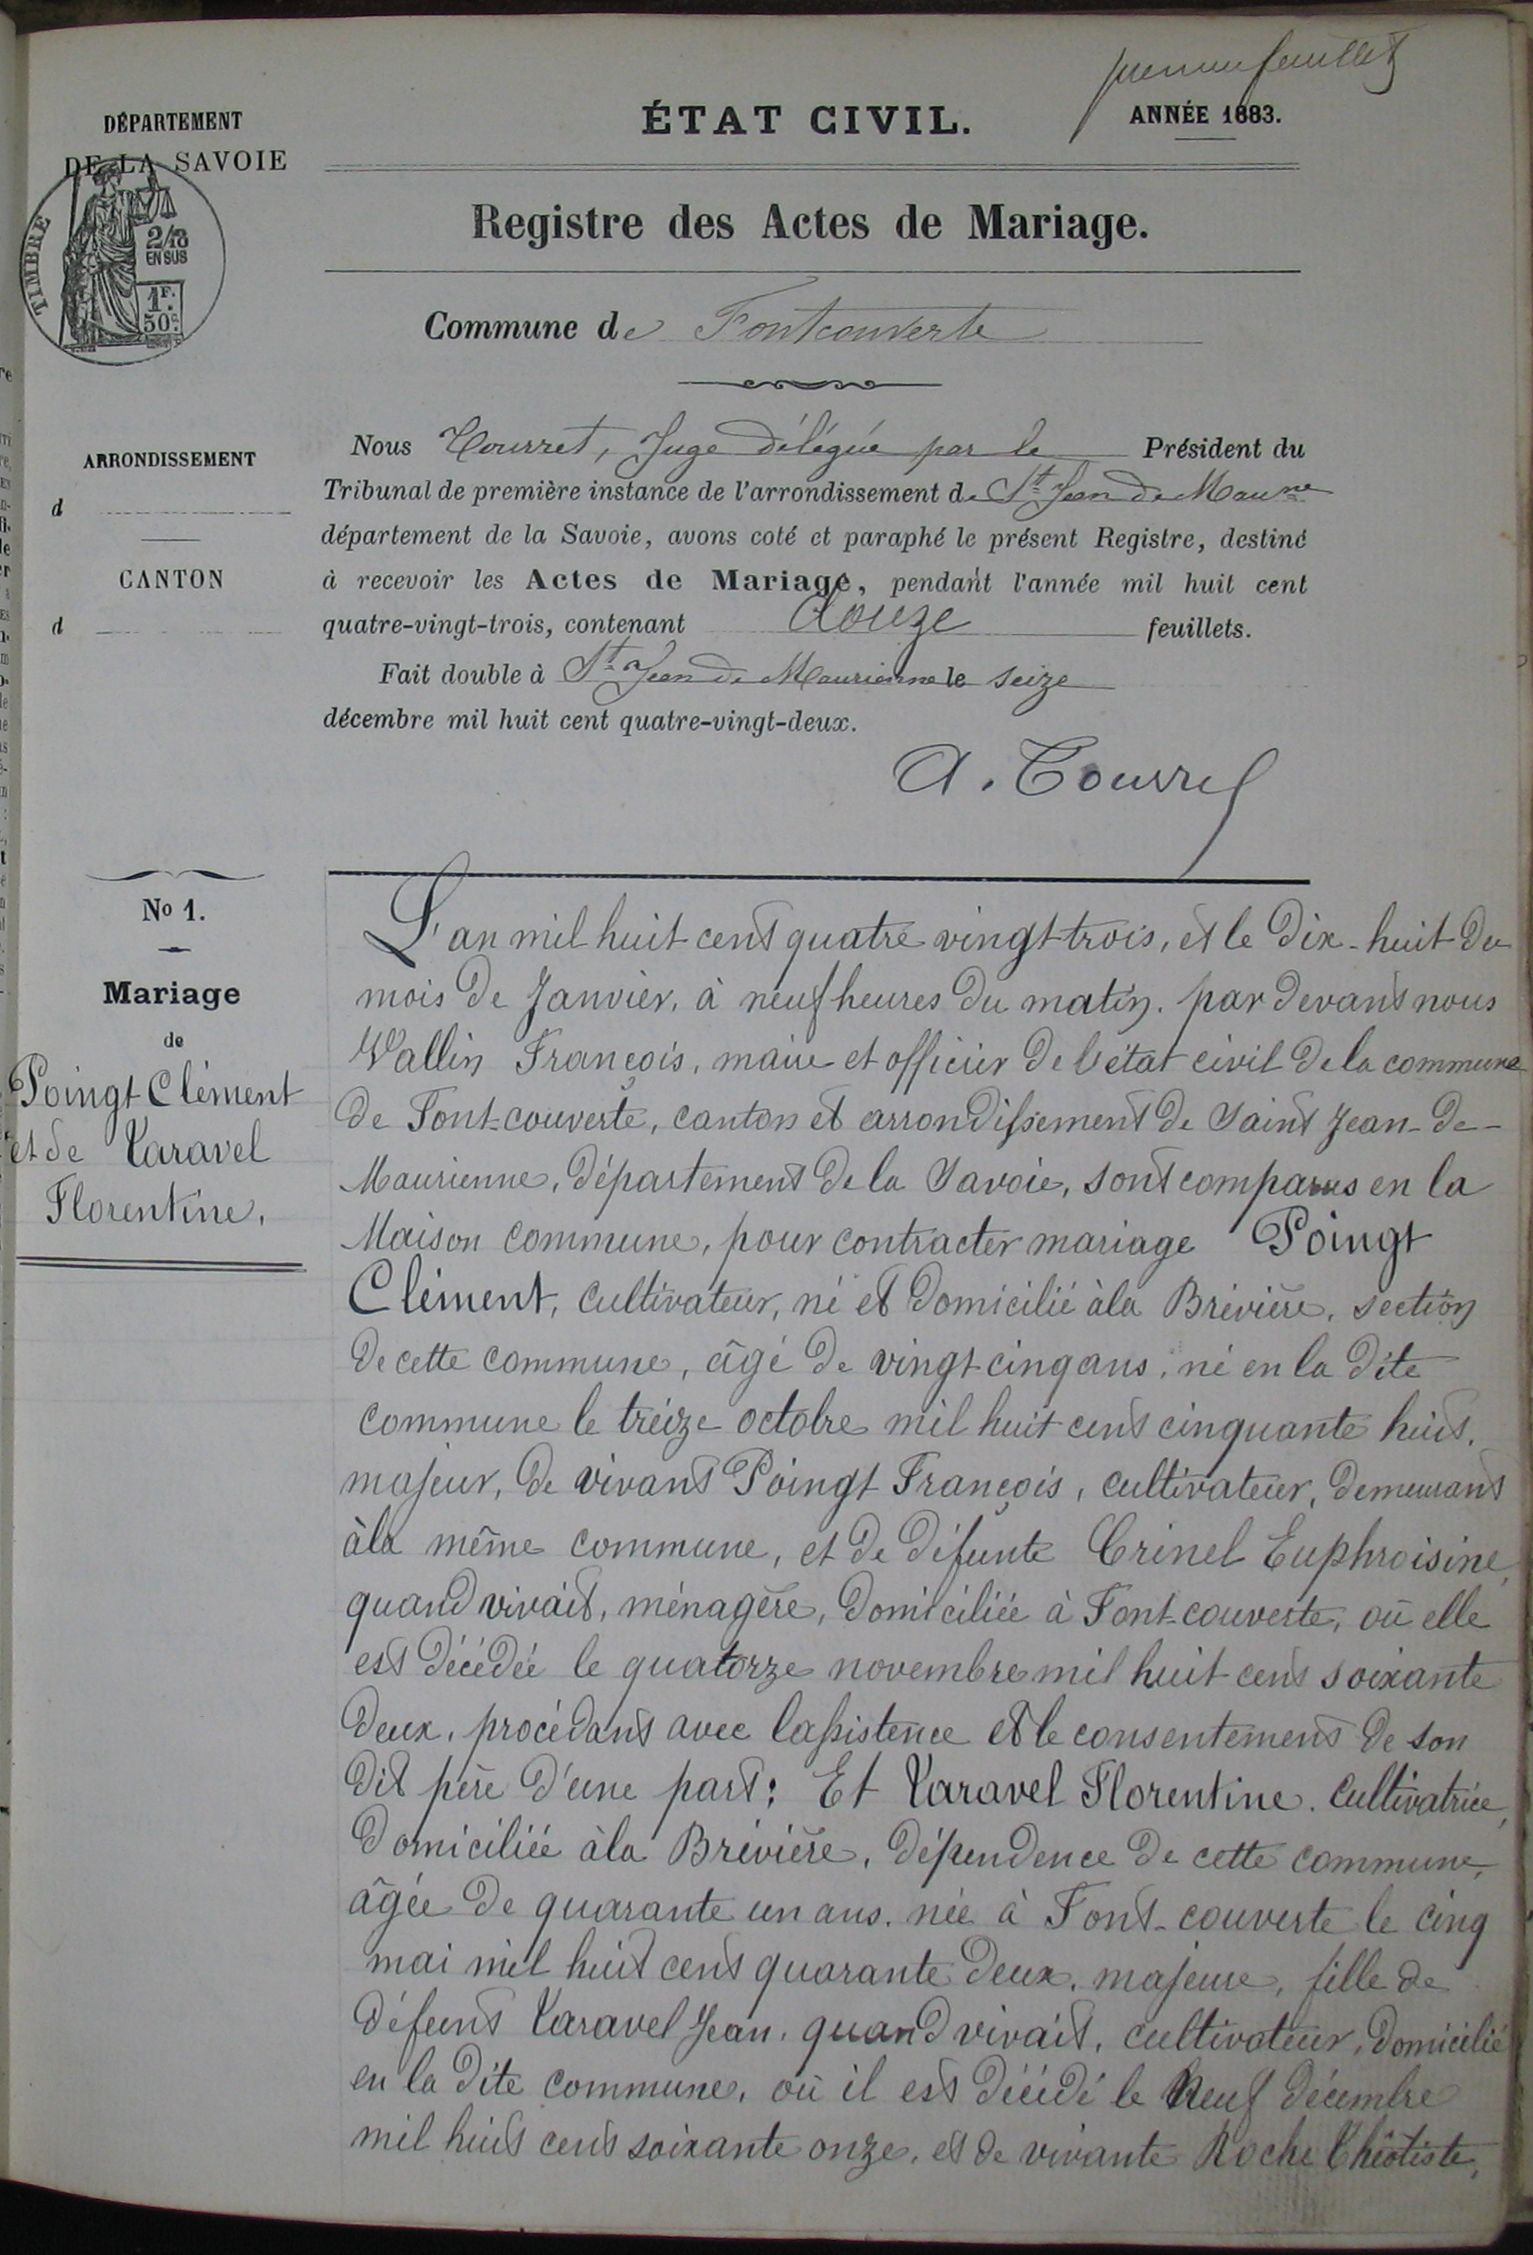 premier feuillet
DÉPARTEMENT
DE LA SAVOIE
ÉTAT CIVIL.
ANNÉE 1883.
TIMBRE
2/10
EN SUS
1F.
50c.
Registre des Actes de Mariage.
Commune de Fontcouverte
ARRONDISSEMENT
d
CANTON
d
Nous Tourret, Juge délégué par le Président du
Tribunal de première instance de l'arrondissement de St Jean de Maune
département de la Savoie, avons coté et paraphé le présent Registre, destiné
à recevoir les Actes de Mariage, pendant l'année mil huit cent
quatre-vingt-trois, contenant douze feuillets.
Fait double à St Jean de Maurienne le seize
décembre mil huit cent quatre-vingt-deux.
A. Tourret
No 1.
Mariage
de
Poingt Clément
et de Varavel
Florentine.
L'an mil huit cent quatre vingt trois, et le dix-huit du
mois de Janvier, à neuf heures du matin. par devant nous
Vallin François, maire et officier de l'état civil de la commune
de Font-couverte, canton et arrondissement de Saint Jean-de-
Maurienne, département de la Savoie, sont comparus en la
Maison commune, pour contracter mariage Poingt
Clément, cultivateur, né et domicilié à la Brévière, section
de cette commune, âgé de vingt-cinq ans, né en la dite
commune le treize octobre mil huit cent cinquante huit,
majeur, de vivant Poingt François, cultivateur, demeurant
à la même commune, et de défunte Crinel Euphroisine,
quand vivait, ménagère, domiciliée à Font-couverte, où elle
est décédée le quatorze novembre mil huit cent soixante
deux, procédant avec l'assistence et le consentement de son
dit père d'une part: Et Varavel Florentine. cultivatrice,
domiciliée à la Brévière, dépendence de cette commune,
âgée de quarante un ans. née à Font-couverte le cinq
mai mil huit cent quarante deux, majeure, fille de
défunt Varavel Jean, quand vivait, cultivateur, domicilié
en la dite commune, où il est décédé le neuf décembre
mil huit cent soixante onze, et de vivante Roche Théotiste,